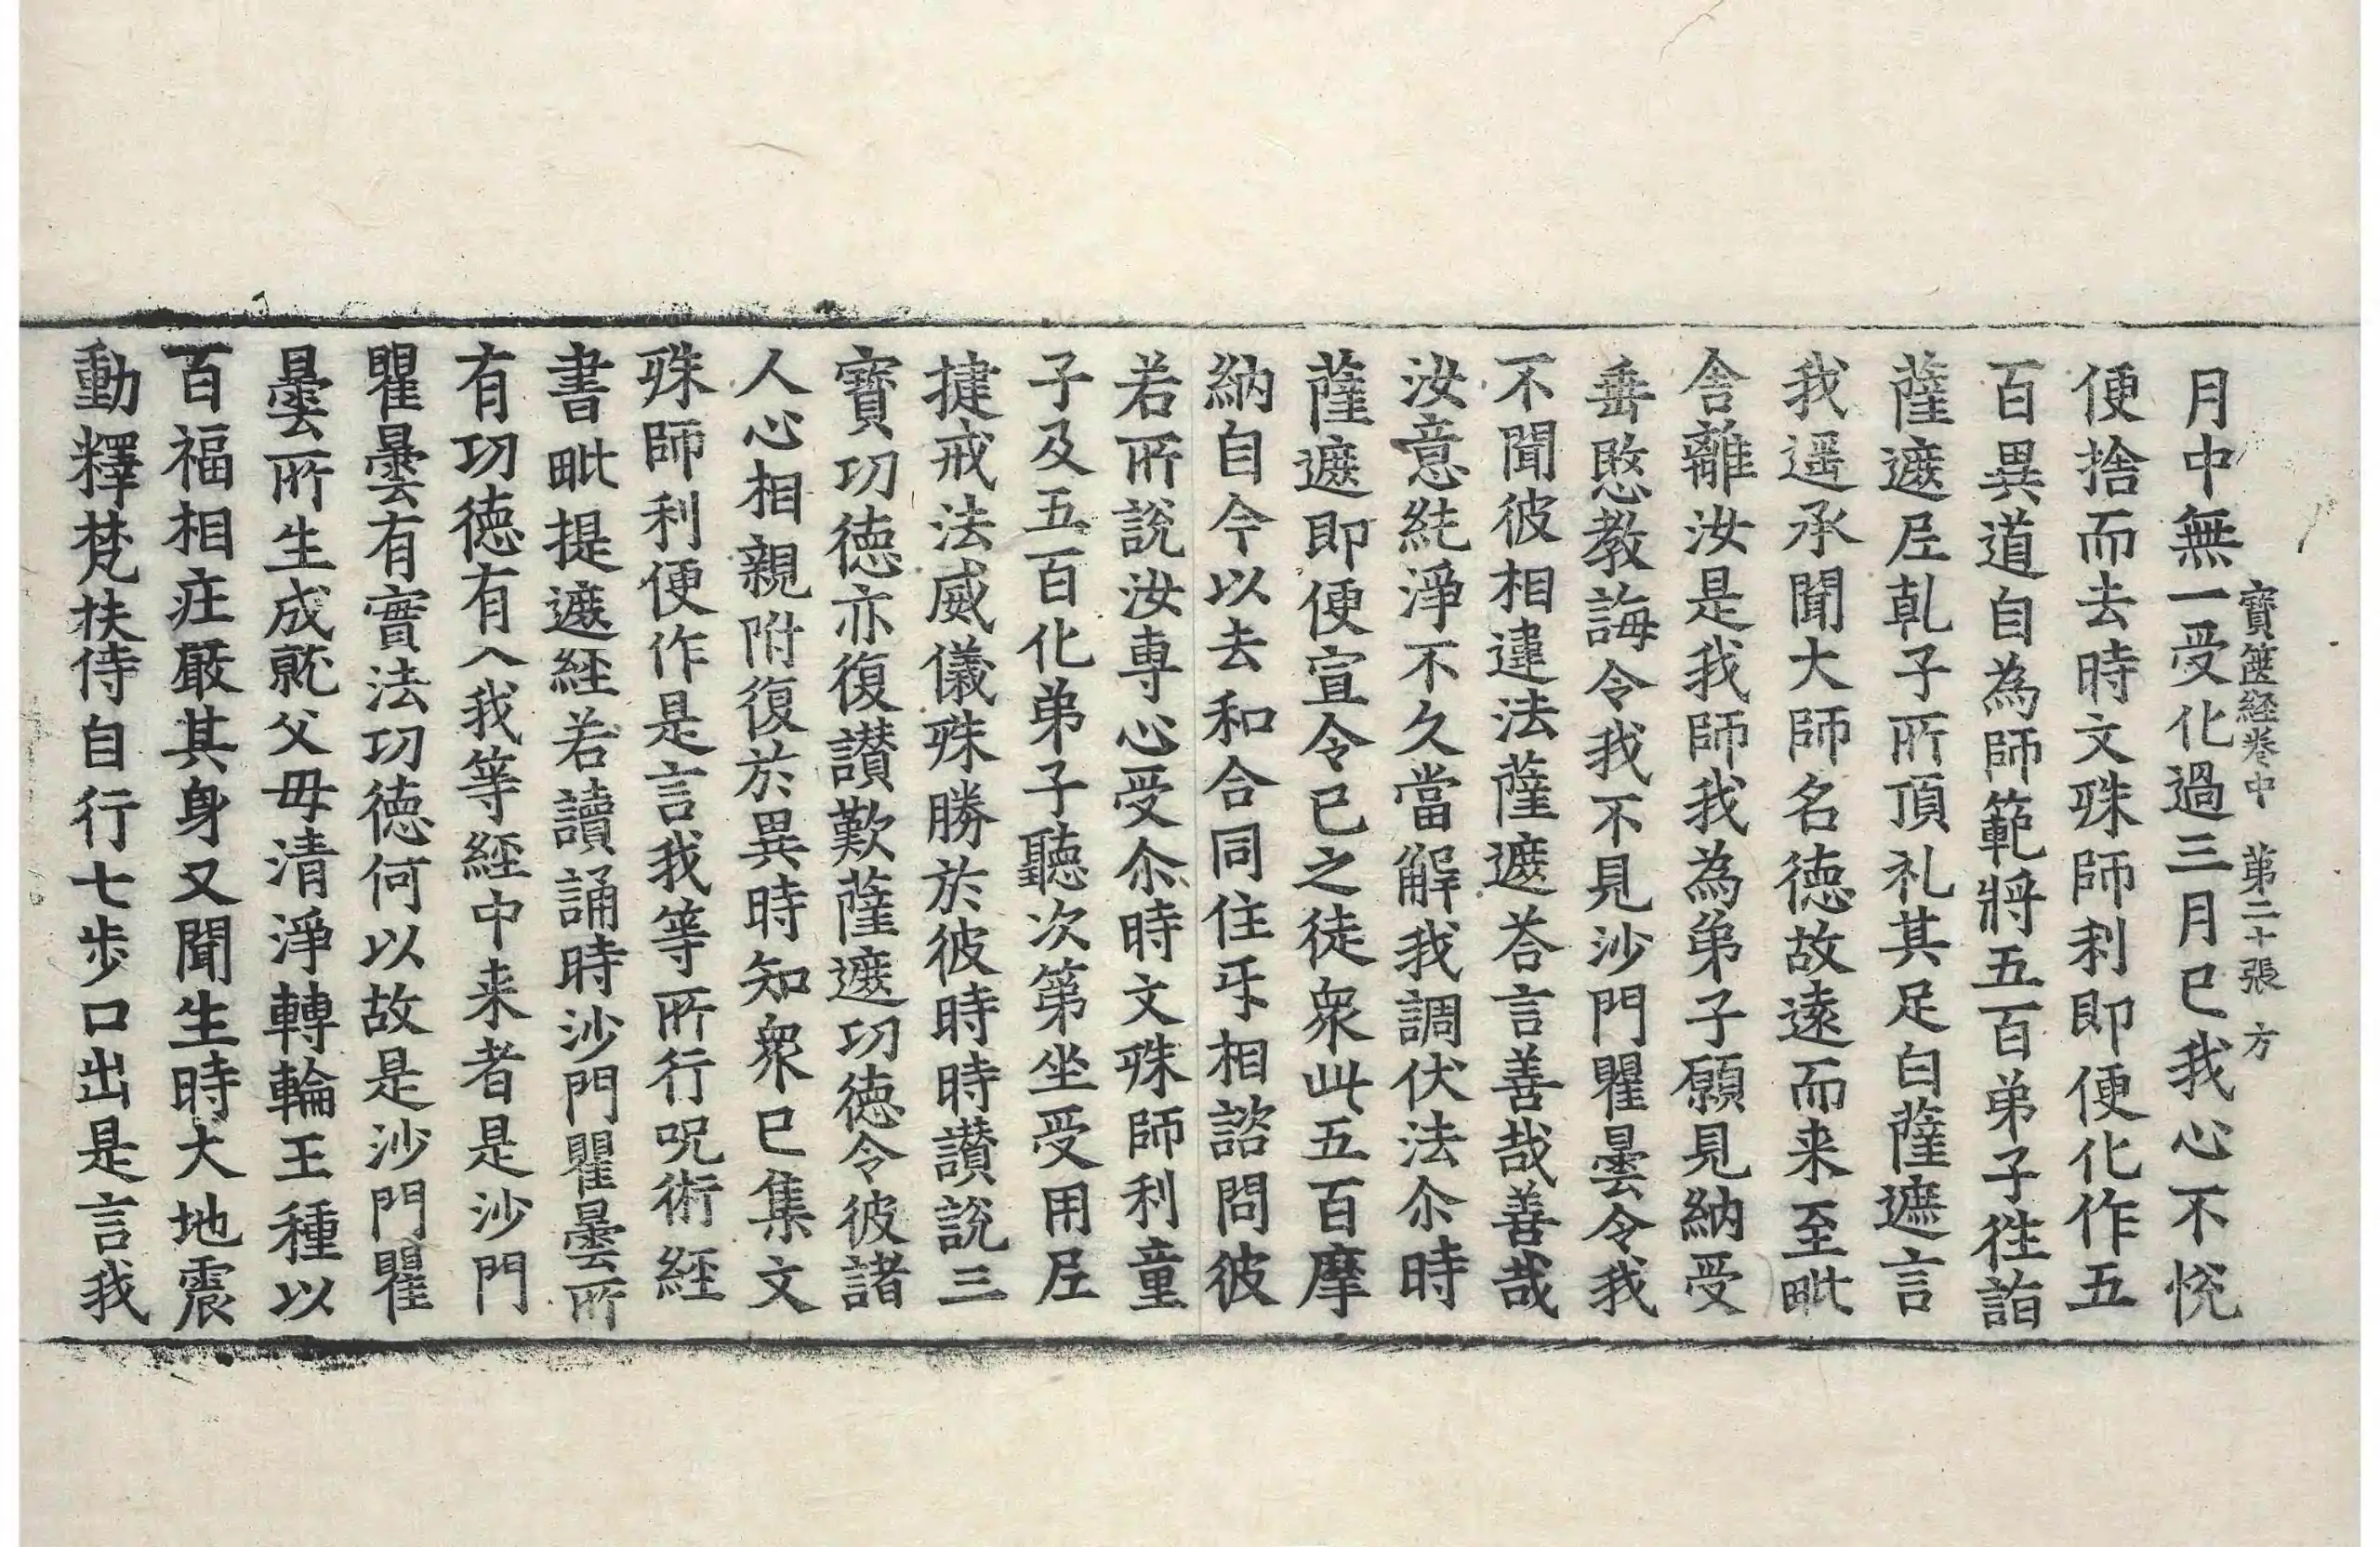 寶篋経卷中 第二十張 方
月中無一受化過三月已我心不悦
便捨而去時文殊師利即便化作五
百異道自為師範將五百弟子徃詣
薩遮𡰱乹子所頂礼其足白薩遮言
我遥承聞大師名徳故遠而来至毗
舍離汝是我師我為弟子願見納受
垂愍教誨令我不見沙門瞿曇令我
不聞彼相違法薩遮荅言善哉善哉
汝意純淨不久當解我調伏法尒時
薩遮即便宣令已之徒衆此五百摩
納自今以去和合同住㸦相諮問彼
若所說汝専心受尒時文殊師利童
子及五百化弟子聽次第坐受用𡰱
揵戒法威儀殊勝於彼時時讃説三
寳功徳亦復讃歎薩遮功徳令彼諸
人心相親附復於異時知衆已集文
殊師利便作是言我等所行呪術經
書毗提遮経若讀誦時沙門瞿曇所
有功徳有入我等経中来者是沙門
瞿曇有實法功徳何以故是沙門瞿
曇所生成就父母清淨轉輪王種以
百福相莊嚴其身又聞生時大地震
動釋梵扶侍自行七步口出是言我